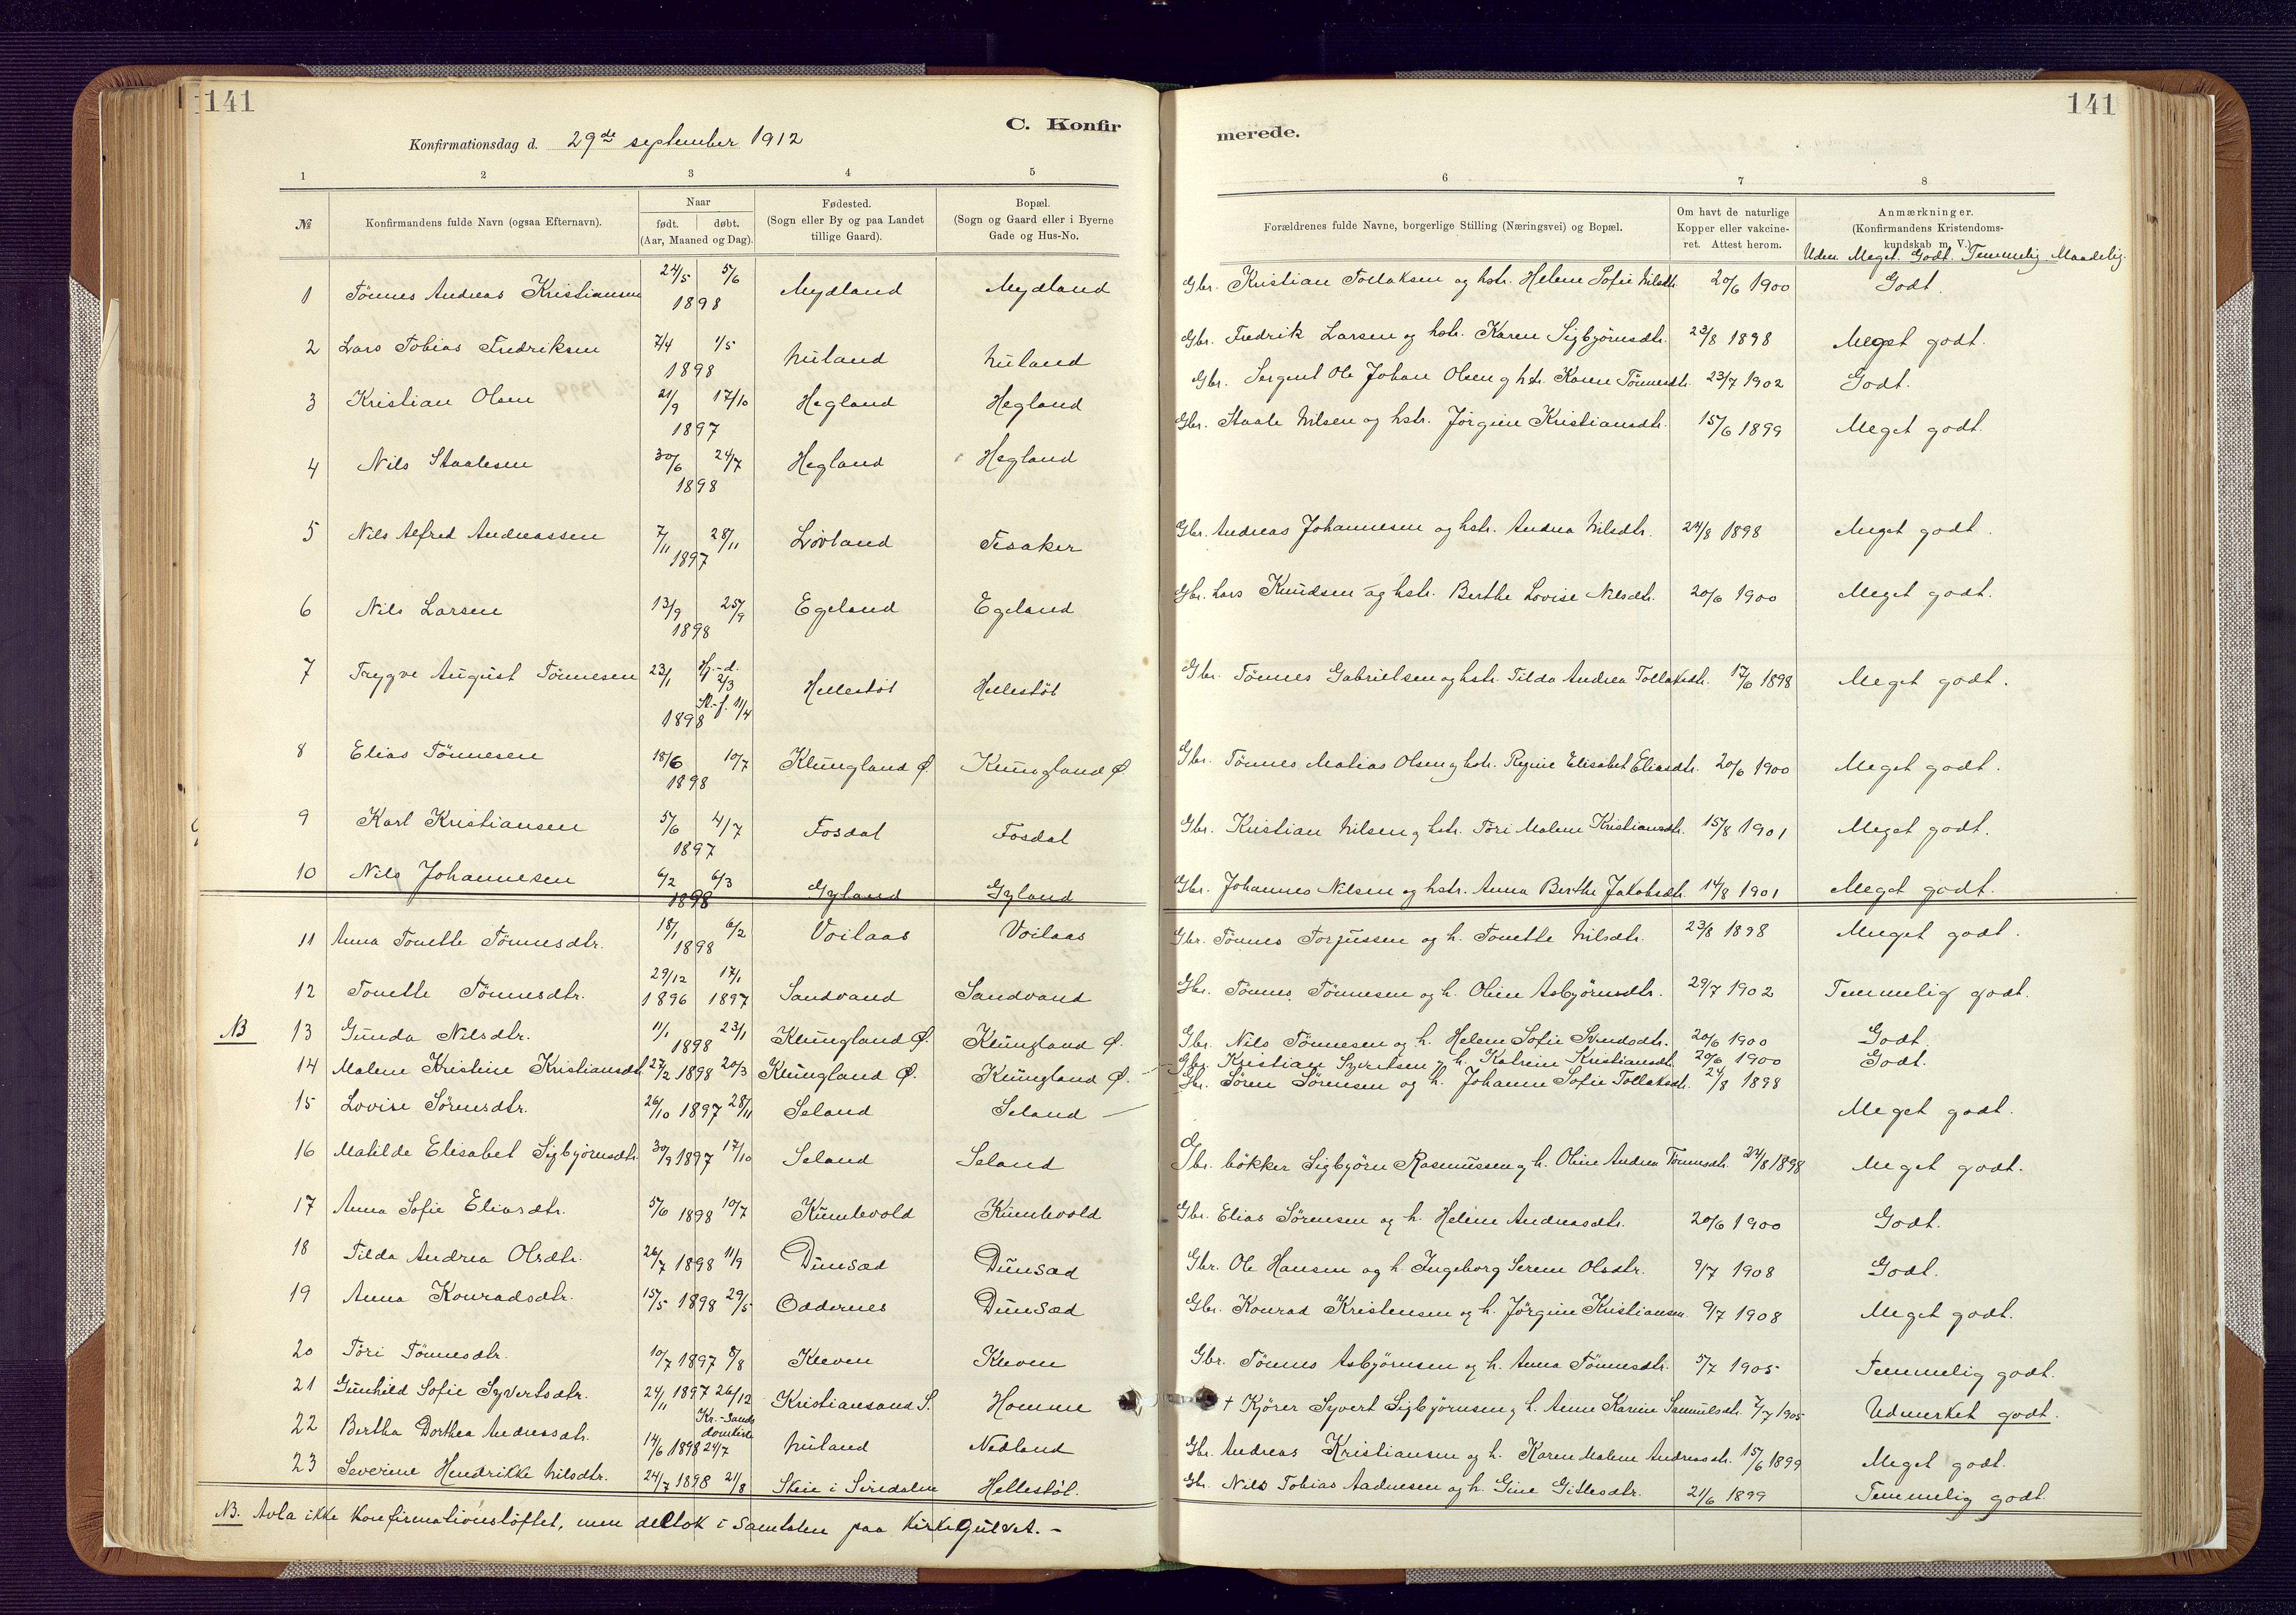 141
C. Konfir
Konfirmationsdag d. 29de september 1912
1 2 3 4 5
№ Konfirmandens fulde Navn (ogsaa Efternavn). Naar født. døbt. (Aar, Maaned og Dag). Fødested. (Sogn eller By og paa Landet tillige Gaard). Bopæl. (Sogn og Gaard eller i Byerne Gade og Hus-No.
1 Tønnes Andreas Kristiansen 24/5 5/6 1898 Mydland Mydland
2 Lars Tobias Fredriksen 7/4 1/5 1898 Nuland Nuland
3 Kristian Olsen 21/9 17/10 1897 Hegland Hegland
4 Nils Staalesen 30/6 24/7 1898 Hegland Hegland
5 Nils Alfred Andreassen 7/11 28/11 1897 Lövland Fesaker
6 Nils Larsen 13/9 25/9 1898 Egeland Egeland
7 Trygve August Tönnesen 23/1 Hj.-d. 2/3 St.-f. 11/4 1898 Hellestöl Hellestöl
8 Elias Tönnesen 18/6 10/7 1898 Klungland Ø. Klungland Ø.
9 Karl Kristiansen 5/6 4/7 1897 Fosdal Fosdal
10 Nils Johannesen 6/2 6/3 1898 Gyland Gyland
11 Anna Tonette Tönnesdtr. 18/1 6/2 1898 Voilaas Voilaas
12 Tonette Tönnesdtr. 29/12 1896 17/1 1897 Sandvand Sandvand
NB 13 Gunda Nilsdtr. 11/1 23/1 1898 Klungland Ø. Klungland Ø.
14 Malene Kristine Kristiansdtr. 27/2 1898 20/3 Klungland Ø. Klungland Ø. —
15 Lovise Sörensdtr. 26/10 1897 28/11 Seland Seland —
16 Matilde Elisabet Sigbjörnsdtr. 30/9 1897 17/10 Seland Seland
17 Anna Sofie Eliasdtr. 5/6 1898 10/7 Kumlevold Kumlevold
18 Tilda Andrea Olsdtr. 26/7 1898 11/9 Dunsæd Dunsæd
19 Anna Konradsdtr. 15/5 1898 29/5 Oddernes Dunsæd
20 Töri Tönnesdtr. 10/7 1897 8/8 Kleven Kleven
21 Gunhild Sofie Syvertsdtr. 24/11 1897 26/12 Kristiansand S. Homme
22 Bertha Dorthea Andreasdtr. 14/6 1898 24/7 Nuland Nedland
Kr.-sands domkirke
23 Severine Hendrikke Nilsdtr. 24/7 1898 21/8 Skeie i Siredalen Hellestöl.
NB. Avla ikke konfirmationslöftet, men deltok i samtalen paa kirkegulvet. —
141
merede.
6 7 8
Forældrenes fulde Navne, borgerlige Stilling (Næringsvei) og Bopæl. Om havt de naturlige Kopper eller vakcineret. Attest herom. Anmærkninger. (Konfirmandens Kristendomskundskab m. V.)
Uden. Meget. Godt. Temmelig. Maadelig.
Gbr. Kristian Tollaksen og hstr. Helene Sofie Nilsdtr. 20/6 1900 Godt.
Gbr. Fredrik Larsen og hstr. Karen Sigbjörnsdtr. 23/8 1898 Meget godt.
Gbr. Sergent Ole Johan Olsen og hstr. Karen Tönnesdtr. 23/7 1902 Godt.
Gbr. Staale Nilsen og hstr. Jörgine Kristiansdtr. 15/6 1899 Meget godt.
Gbr. Andreas Johannesen og hstr. Andrea Nilsdtr. 24/8 1898 Meget godt.
Gbr. Lars Knudsen og hstr. Berthe Lovise Nilsdtr. 20/6 1900 Meget godt.
Gbr. Tönnes Gabrielsen og hstr. Tilda Andrea Tollaksdtr. 17/6 1898 Meget godt.
Gbr. Tönnes Matias Olsen og hstr. Regine Elisabet Eliasdtr. 20/6 1900 Meget godt.
Gbr. Kristian Nilsen og hstr. Töri Malene Kristiansdtr. 15/8 1901 Meget godt.
Gbr. Johannes Nilsen og hstr. Anna Berthe Jakobsdtr. 14/8 1901 Meget godt.
Gbr. Tönnes Torjussen og h. Tonette Nilsdtr. 23/8 1898 Meget godt.
Gbr. Tönnes Tönnesen og h. Oline Asbjörnsdtr. 29/7 1902 Temmelig godt.
Gbr. Nils Tönnesen og h. Helene Sofie Svendsdtr. 20/6 1900 Godt.
Gbr. Kristian Syvertsen og h. Katrine Kristiansdtr. 20/6 1900 Godt.
Gbr. Sören Sörensen og h. Johanne Sofie Tollaksdtr. 24/8 1898 Meget godt.
Gbr. bökker Sigbjörn Rasmussen og h. Oline Andrea Tönnesdtr. 24/8 1898 Meget godt.
Gbr. Elias Sörensen og h. Heline Andreasdtr. 20/6 1900 Godt.
Gbr. Ole Hansen og h. Ingeborg Serene Olsdtr. 9/7 1908 Godt.
Gbr. Konrad Kristensen og h. Jörgine Kristiansen. 9/7 1908 Meget godt.
Gbr. Tönnes Asbjörnsen og h. Anna Tönnesdtr. 5/7 1905 Temmelig godt.
+ Kjörer Syvert Sigbjörnsen og h. Anne Karine Samuelsdtr. 7/7 1905 Udmerket godt.
Gbr. Andreas Kristiansen og h. Karen Malene Andreasdtr. 15/6 1899 Meget godt.
Gbr. Nils Tobias Aadnesen og h. Gine Gitlesdtr. 21/6 1899 Temmelig godt.